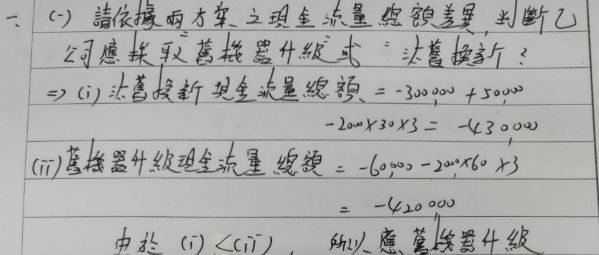 一、(一) 請依據兩方案之現金流量總額差異,判斷乙
公司應採取"舊機器升級"或"汰舊換新"?
⇒ (i) 汰舊換新現金流量總額 = -300,000 + 50,000
-2000×30×3 = -430,000
(ii) 舊機器升級現金流量總額 = -60,000 - 2000×60×3
= -420,000
由於 (i) < (ii), 所以應舊機器升級